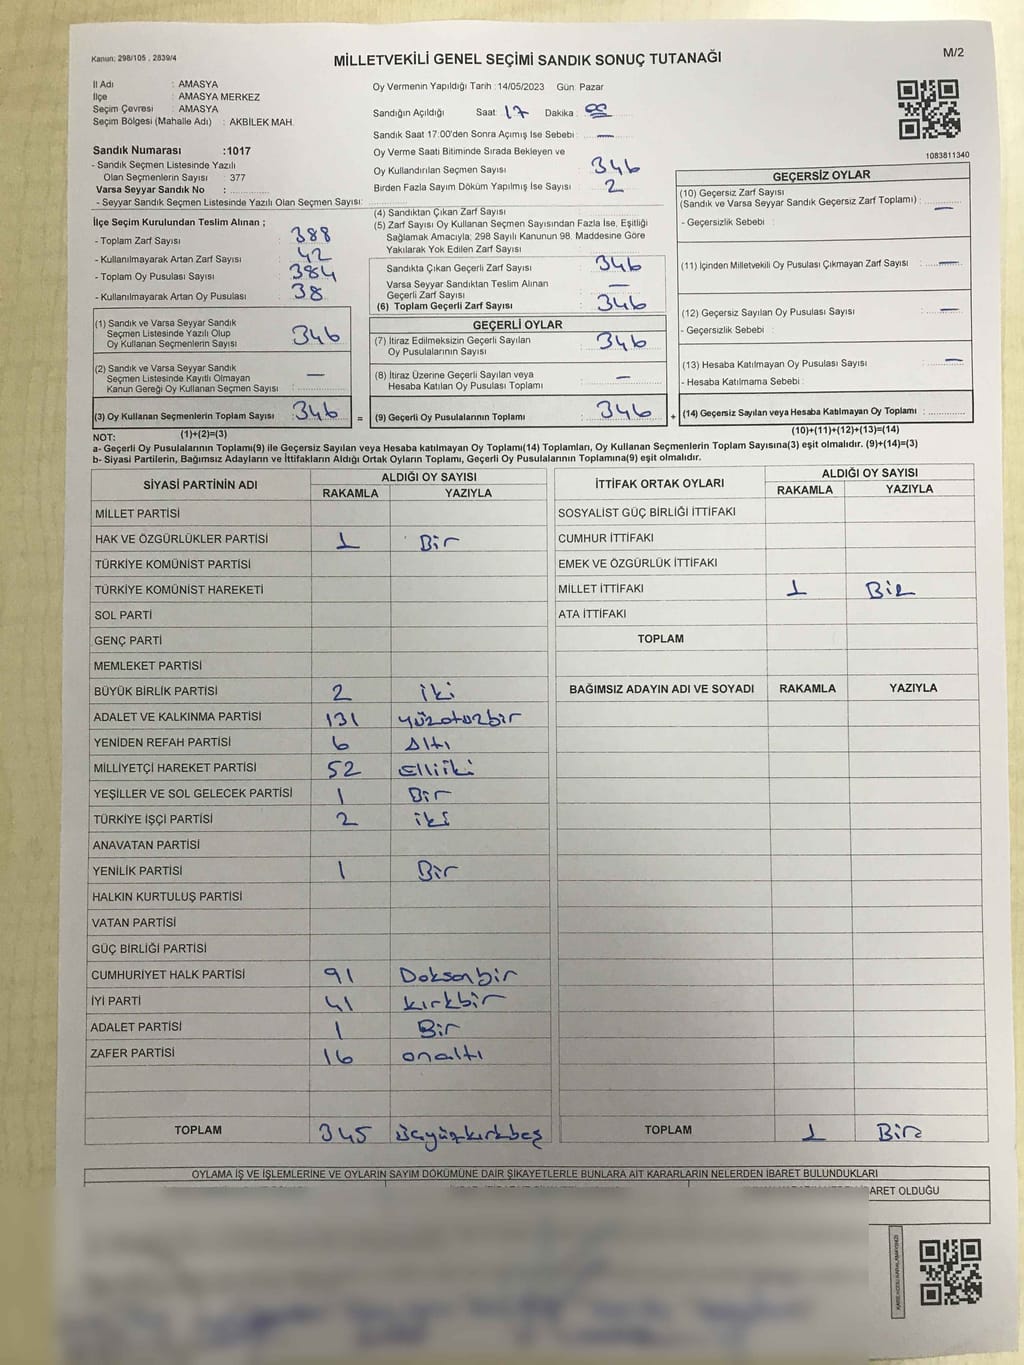 Kanun: 298/105 , 2839/4
MİLLETVEKİLİ GENEL SEÇİMİ SANDIK SONUÇ TUTANAĞI
M/2
İl Adı : AMASYA
İlçe : AMASYA MERKEZ
Seçim Çevresi : AMASYA
Seçim Bölgesi (Mahalle Adı) : AKBİLEK MAH.
Sandık Numarası :1017
- Sandık Seçmen Listesinde Yazılı
Olan Seçmenlerin Sayısı : 377
Varsa Seyyar Sandık No :
- Seyyar Sandık Seçmen Listesinde Yazılı Olan Seçmen Sayısı:
Oy Vermenin Yapıldığı Tarih :14/05/2023 Gün: Pazar
Sandığın Açıldığı Saat: 17 Dakika:
Sandık Saat 17:00'den Sonra Açımış İse Sebebi : —
Oy Verme Saati Bitiminde Sırada Bekleyen ve
Oy Kullandırılan Seçmen Sayısı : 346
Birden Fazla Sayım Döküm Yapılmış İse Sayısı : 2
1083811340
İlçe Seçim Kurulundan Teslim Alınan ;
- Toplam Zarf Sayısı : 388
- Kullanılmayarak Artan Zarf Sayısı : 42
- Toplam Oy Pusulası Sayısı : 384
- Kullanılmayarak Artan Oy Pusulası : 38
(1) Sandık ve Varsa Seyyar Sandık
Seçmen Listesinde Yazılı Olup
Oy Kullanan Seçmenlerin Sayısı : 346
(2) Sandık ve Varsa Seyyar Sandık
Seçmen Listesinde Kayıtlı Olmayan
Kanun Gereği Oy Kullanan Seçmen Sayısı : —
(3) Oy Kullanan Seçmenlerin Toplam Sayısı : 346
(1)+(2)=(3)
(4) Sandıktan Çıkan Zarf Sayısı :
(5) Zarf Sayısı Oy Kullanan Seçmen Sayısından Fazla İse, Eşitliği
Sağlamak Amacıyla; 298 Sayılı Kanunun 98. Maddesine Göre
Yakılarak Yok Edilen Zarf Sayısı :
Sandıkta Çıkan Geçerli Zarf Sayısı : 346
Varsa Seyyar Sandıktan Teslim Alınan
Geçerli Zarf Sayısı : —
(6) Toplam Geçerli Zarf Sayısı : 346
GEÇERLİ OYLAR
(7) İtiraz Edilmeksizin Geçerli Sayılan
Oy Pusulalarının Sayısı : 346
(8) İtiraz Üzerine Geçerli Sayılan veya
Hesaba Katılan Oy Pusulası Toplamı : —
= (9) Geçerli Oy Pusulalarının Toplamı : 346 +
GEÇERSİZ OYLAR
(10) Geçersiz Zarf Sayısı
(Sandık ve Varsa Seyyar Sandık Geçersiz Zarf Toplamı) : —
- Geçersizlik Sebebi :
(11) İçinden Milletvekili Oy Pusulası Çıkmayan Zarf Sayısı : —
(12) Geçersiz Sayılan Oy Pusulası Sayısı : —
- Geçersizlik Sebebi :
(13) Hesaba Katılmayan Oy Pusulası Sayısı : —
- Hesaba Katılmama Sebebi :
(14) Geçersiz Sayılan veya Hesaba Katılmayan Oy Toplamı :
(10)+(11)+(12)+(13)=(14)
NOT:
a- Geçerli Oy Pusulalarının Toplamı(9) ile Geçersiz Sayılan veya Hesaba katılmayan Oy Toplamı(14) Toplamları, Oy Kullanan Seçmenlerin Toplam Sayısına(3) eşit olmalıdır. (9)+(14)=(3)
b- Siyasi Partilerin, Bağımsız Adayların ve İttifakların Aldığı Ortak Oyların Toplamı, Geçerli Oy Pusulalarının Toplamına(9) eşit olmalıdır.
SİYASİ PARTİNİN ADI ALDIĞI OY SAYISI
RAKAMLA YAZIYLA
MİLLET PARTİSİ
HAK VE ÖZGÜRLÜKLER PARTİSİ 1 Bir
TÜRKİYE KOMÜNİST PARTİSİ
TÜRKİYE KOMÜNİST HAREKETİ
SOL PARTİ
GENÇ PARTİ
MEMLEKET PARTİSİ
BÜYÜK BİRLİK PARTİSİ 2 iki
ADALET VE KALKINMA PARTİSİ 131 yüzotuzbir
YENİDEN REFAH PARTİSİ 6 Altı
MİLLİYETÇİ HAREKET PARTİSİ 52 Elliiki
YEŞİLLER VE SOL GELECEK PARTİSİ 1 Bir
TÜRKİYE İŞÇİ PARTİSİ 2 iki
ANAVATAN PARTİSİ
YENİLİK PARTİSİ 1 Bir
HALKIN KURTULUŞ PARTİSİ
VATAN PARTİSİ
GÜÇ BİRLİĞİ PARTİSİ
CUMHURİYET HALK PARTİSİ 91 Doksanbir
İYİ PARTİ 41 kırkbir
ADALET PARTİSİ 1 Bir
ZAFER PARTİSİ 16 onaltı
TOPLAM 345 üçyüzkırkbeş
İTTİFAK ORTAK OYLARI ALDIĞI OY SAYISI
RAKAMLA YAZIYLA
SOSYALİST GÜÇ BİRLİĞİ İTTİFAKI
CUMHUR İTTİFAKI
EMEK VE ÖZGÜRLÜK İTTİFAKI
MİLLET İTTİFAKI 1 Bir
ATA İTTİFAKI
TOPLAM
BAĞIMSIZ ADAYIN ADI VE SOYADI RAKAMLA YAZIYLA
TOPLAM 1 Bir
OYLAMA İŞ VE İŞLEMLERİNE VE OYLARIN SAYIM DÖKÜMÜNE DAİR ŞİKAYETLERLE BUNLARA AİT KARARLARIN NELERDEN İBARET BULUNDUKLARI
ARET OLDUĞU